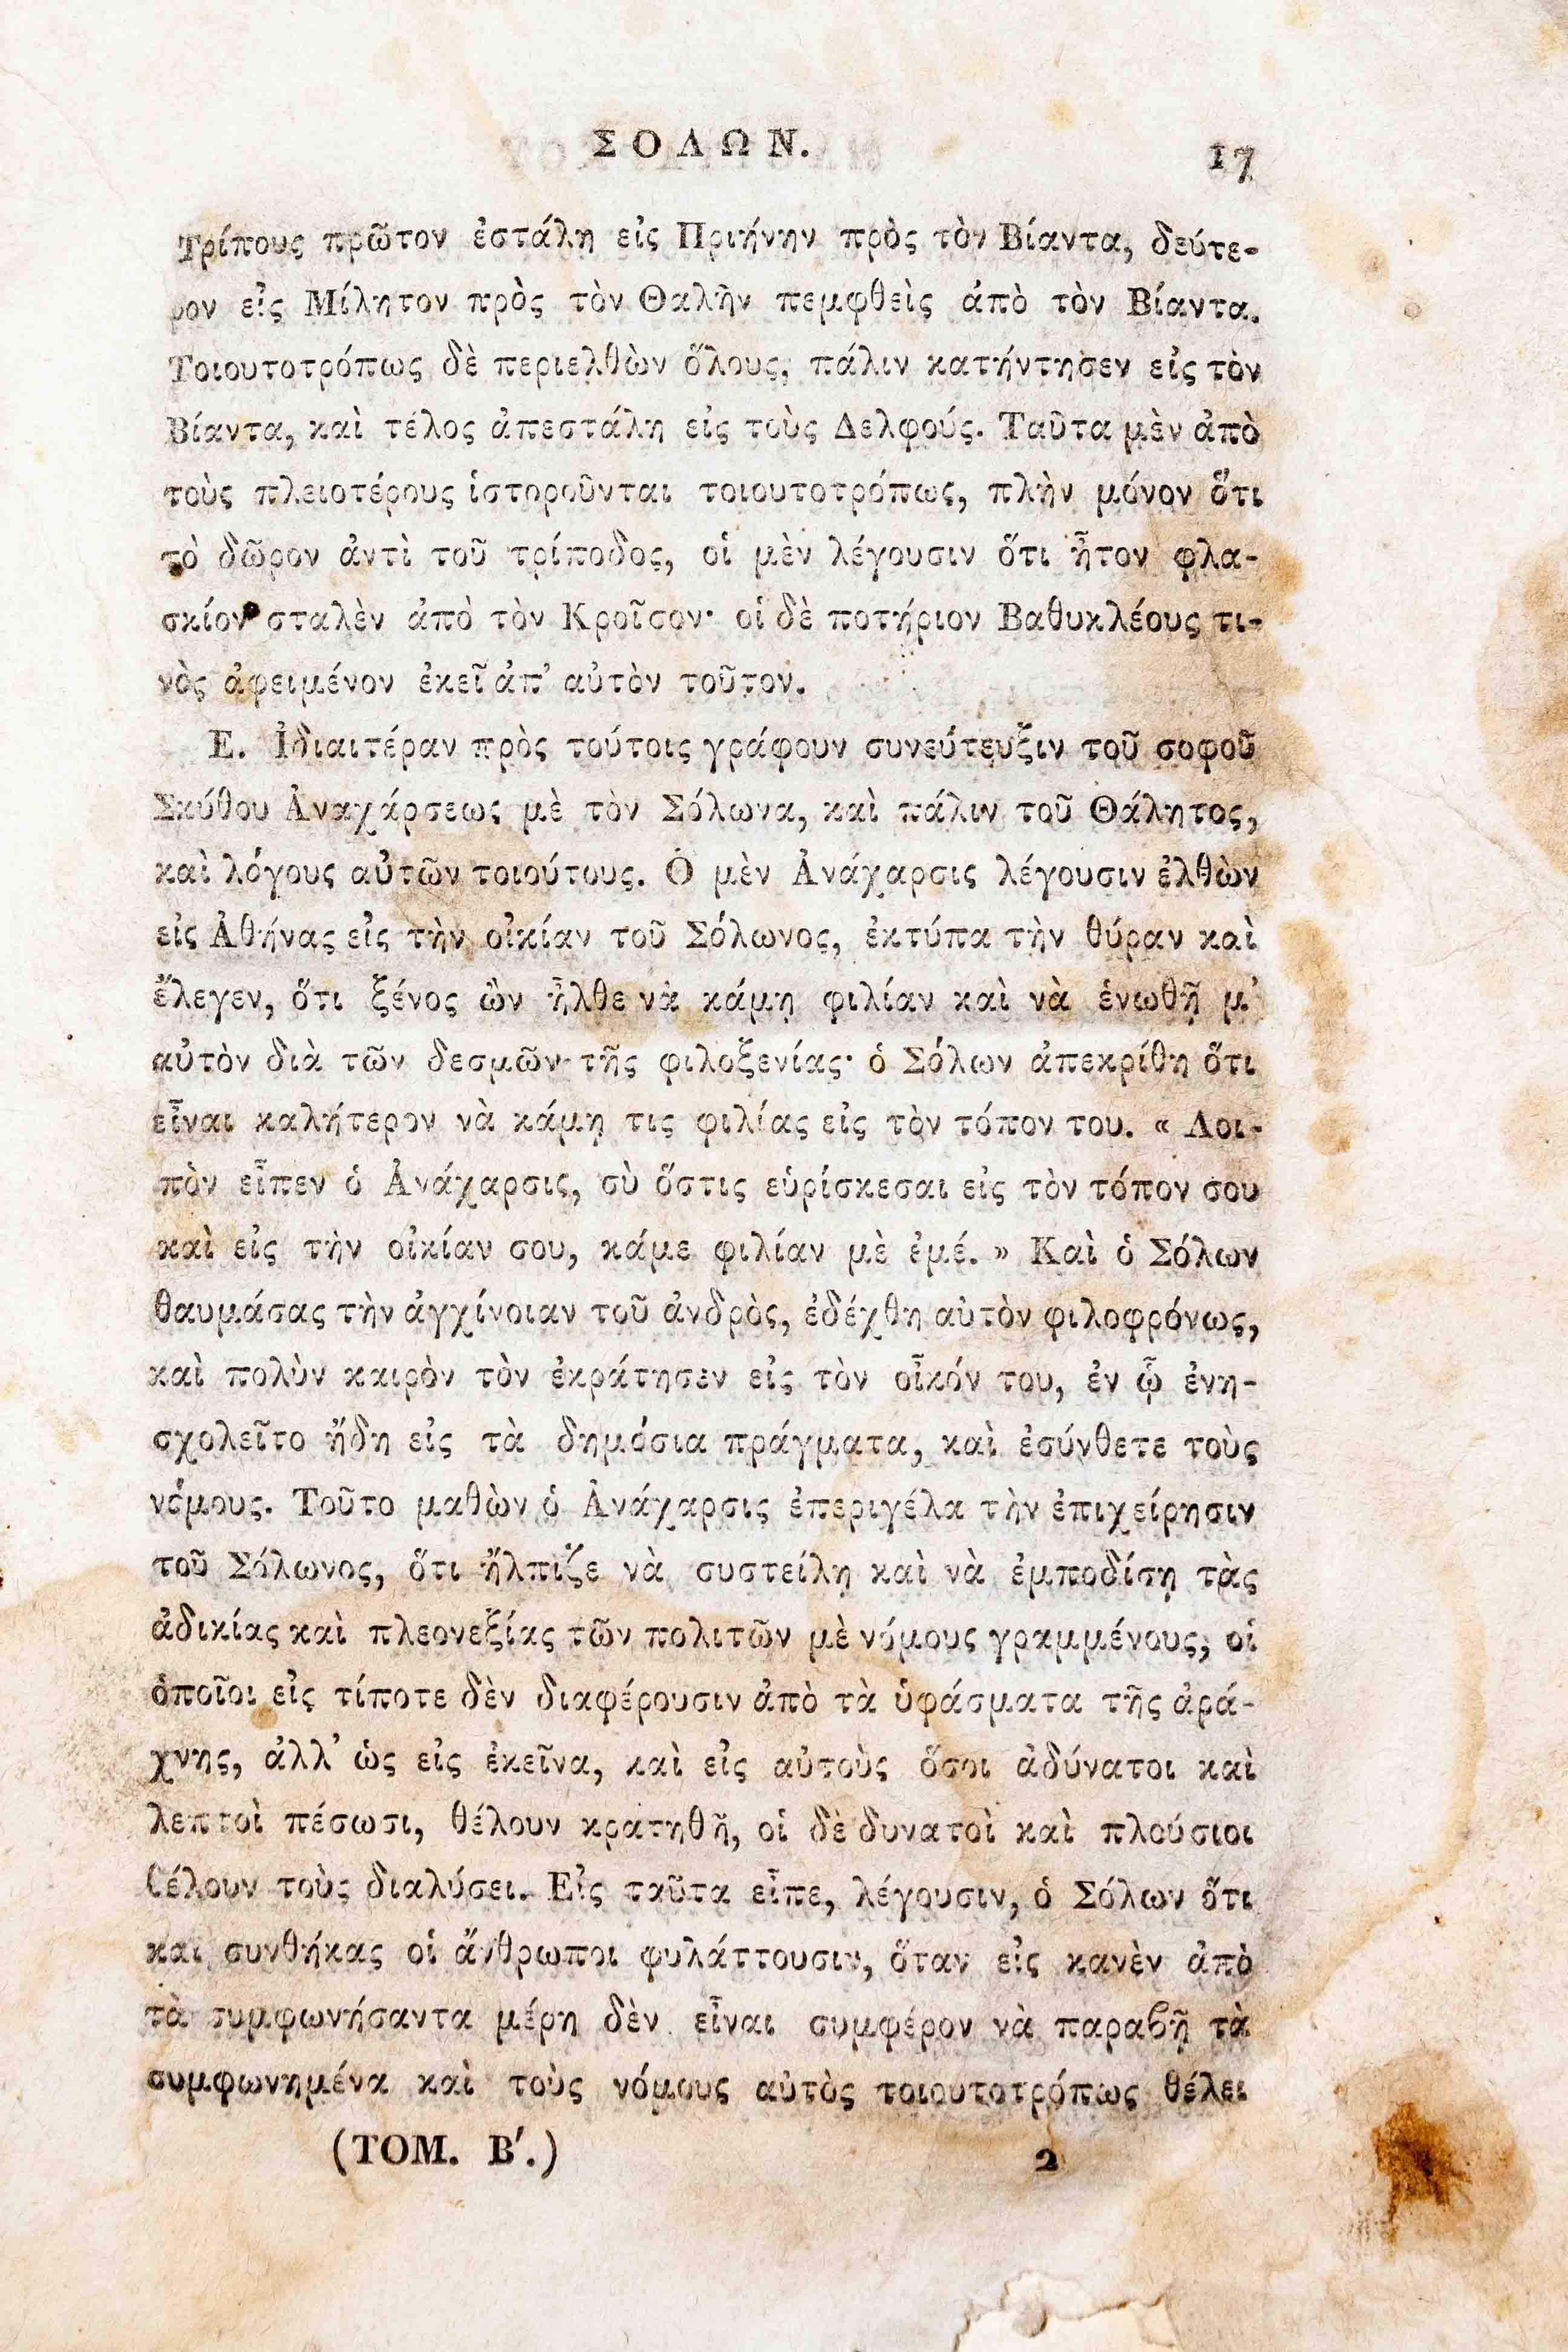 ΣΟΛΩΝ.
17
Τρίπους πρῶτον ἐστάλη εἰς Πριήνην πρὸς τὸν Βίαντα, δεύτε-
ρον εἰς Μίλητον πρὸς τὸν Θαλῆν πεμφθεὶς ἀπὸ τὸν Βίαντα.
Τοιουτοτρόπως δὲ περιελθὼν ὅλους, πάλιν κατήντησεν εἰς τὸν
Βίαντα, καὶ τέλος ἀπεστάλη εἰς τοὺς Δελφούς. Ταῦτα μὲν ἀπὸ
τοὺς πλειοτέρους ἱστοροῦνται τοιουτοτρόπως, πλὴν μόνον ὅτι
τὸ δῶρον ἀντὶ τοῦ τρίποδος, οἱ μὲν λέγουσιν ὅτι ἦτον φλα-
σκίον σταλὲν ἀπὸ τὸν Κροῖσον· οἱ δὲ ποτήριον Βαθυκλέους τι-
νὸς ἀφειμένον ἐκεῖ ἀπ' αὐτὸν τοῦτον.
Ε. Ἰδιαιτέραν πρὸς τούτοις γράφουν συνεύτευξιν τοῦ σοφοῦ
Σκύθου Ἀναχάρσεως μὲ τὸν Σόλωνα, καὶ πάλιν τοῦ Θάλητος,
καὶ λόγους αὐτῶν τοιούτους. Ὁ μὲν Ἀνάχαρσις λέγουσιν ἐλθὼν
εἰς Ἀθήνας εἰς τὴν οἰκίαν τοῦ Σόλωνος, ἐκτύπα τὴν θύραν καὶ
ἔλεγεν, ὅτι ξένος ὢν ἦλθε νὰ κάμῃ φιλίαν καὶ νὰ ἑνωθῇ μ'
αὐτὸν διὰ τῶν δεσμῶν τῆς φιλοξενίας· ὁ Σόλων ἀπεκρίθη ὅτι
εἶναι καλήτερον νὰ κάμῃ τις φιλίας εἰς τὸν τόπον του. « Λοι-
πὸν εἶπεν ὁ Ἀνάχαρσις, σὺ ὅστις εὑρίσκεσαι εἰς τὸν τόπον σου
καὶ εἰς τὴν οἰκίαν σου, κάμε φιλίαν μὲ ἐμέ. » Καὶ ὁ Σόλων
θαυμάσας τὴν ἀγχίνοιαν τοῦ ἀνδρὸς, ἐδέχθη αὐτὸν φιλοφρόνως,
καὶ πολὺν καιρὸν τὸν ἐκράτησεν εἰς τὸν οἶκόν του, ἐν ᾧ ἐνη-
σχολεῖτο ἤδη εἰς τὰ δημόσια πράγματα, καὶ ἐσύνθετε τοὺς
νόμους. Τοῦτο μαθὼν ὁ Ἀνάχαρσις ἐπεριγέλα τὴν ἐπιχείρησιν
τοῦ Σόλωνος, ὅτι ἤλπιζε νὰ συστείλῃ καὶ νὰ ἐμποδίσῃ τὰς
ἀδικίας καὶ πλεονεξίας τῶν πολιτῶν μὲ νόμους γραμμένους, οἱ
ὁποῖοι εἰς τίποτε δὲν διαφέρουσιν ἀπὸ τὰ ὑφάσματα τῆς ἀρά-
χνης, ἀλλ' ὡς εἰς ἐκεῖνα, καὶ εἰς αὐτοὺς ὅσοι ἀδύνατοι καὶ
λεπτοὶ πέσωσι, θέλουν κρατηθῆ, οἱ δὲ δυνατοὶ καὶ πλούσιοι
θέλουν τοὺς διαλύσει. Εἰς ταῦτα εἶπε, λέγουσιν, ὁ Σόλων ὅτι
καὶ συνθήκας οἱ ἄνθρωποι φυλάττουσιν, ὅταν εἰς κανὲν ἀπὸ
τὰ συμφωνήσαντα μέρη δὲν εἶναι συμφέρον νὰ παραϐῇ τὰ
συμφωνημένα καὶ τοὺς νόμους αὐτὸς τοιουτοτρόπως θέλει
(ΤΟΜ. Β'.)
2